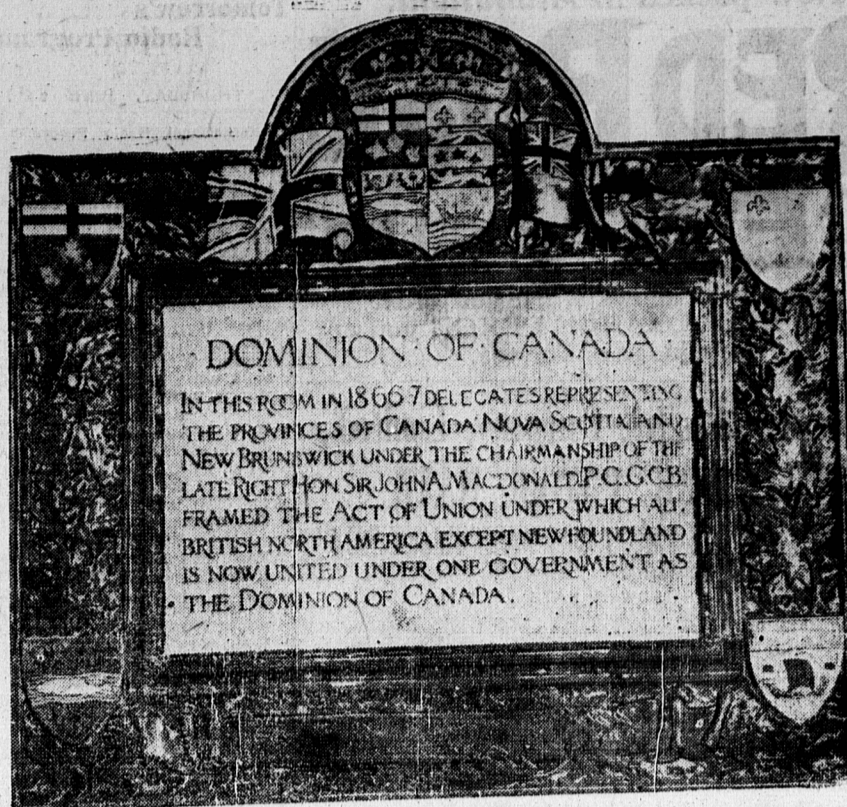 DOMINION · OF · CANADA ·
IN THIS ROOM IN 1866 7 DELEGATES REPRESENTING
THE PROVINCES OF CANADA NOVA SCOTIA AND
NEW BRUNSWICK UNDER THE CHAIRMANSHIP OF THE
LATE RIGHT HON SIR JOHN A. MACDONALD. P.C. G.C.B.
FRAMED THE ACT OF UNION UNDER WHICH ALL
BRITISH NORTH AMERICA EXCEPT NEWFOUNDLAND
IS NOW UNITED UNDER ONE GOVERNMENT AS
· THE DOMINION OF CANADA .